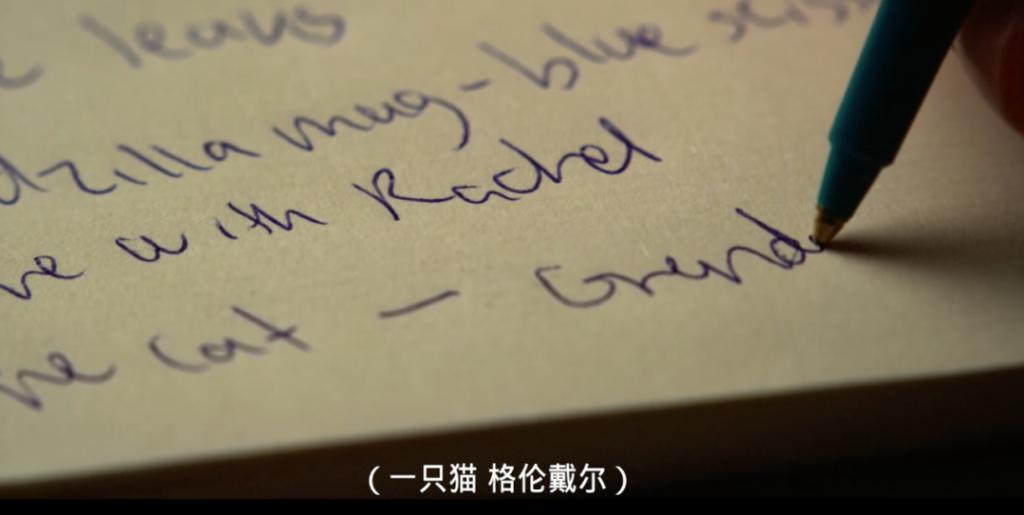 leaves
dzilla mug - blue sciss
ne with Rachel
ne cat - Grend
（一只猫 格伦戴尔）